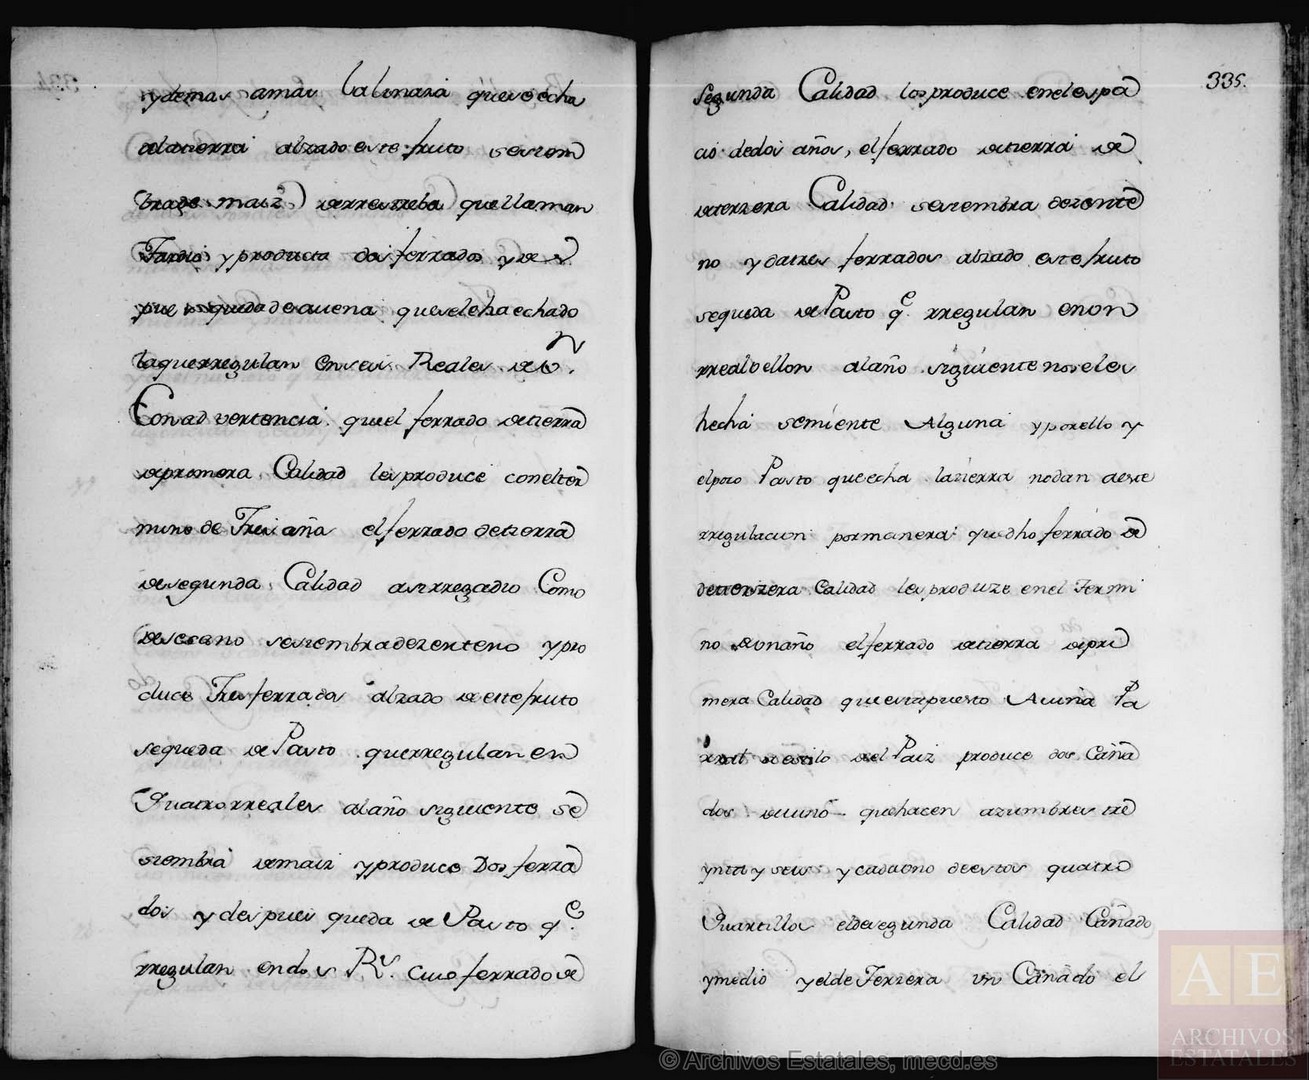 y demas amas la linaza que se echa
a la tierra alzado este fruto se siem
bra de maiz de rresteba que llaman
Tardio y produce dos ferrados y de
pue queda de avena que se le ha echado
la que rregulan en seis Reales de Vn.
Con advertencia que el ferrado de tierra
de primera Calidad les produce con el ter
mino de Tres años el ferrado de tierra
de segunda Calidad asi rregadio Como
de secano se siembra de zenteno y pro
duce Tres ferrados alzado de este fruto
se queda de Pasto que rregulan en
Quatro rreales al año siguiente se
siembra de maiz y produce Dos ferra
dos y despues queda de Pasto qe.
rregulan en dos Rs. cuio ferrado de
335.
segunda Calidad los produce en el espa
cio de dos años, el ferrado de tierra de
de terzera Calidad se siembra de zente
no y da tres ferrados alzado este fruto
se queda de Pasto qe. rregulan en on
rreal vellon al año siguiente no se les
hecha semiente Alguna y por ello y
el poco Pasto que echa la tierra no dan a este
rregulacion por manera que dho ferrado de
de terszera Calidad les produze en el Termi
no de un año el ferrado de tierra de pri
mera Calidad que esta puesto A viña Pa
rral a estilo del Paiz produce dos Caña
dos de vino que hacen azumbres tre
ynta y seis y cada uno de estos quatro
Quartillos el de segunda Calidad Cañado
y medio y el de Terzera un Cañado el
© Archivos Estatales, mecd.es
AE
ARCHIVOS
ESTATALES